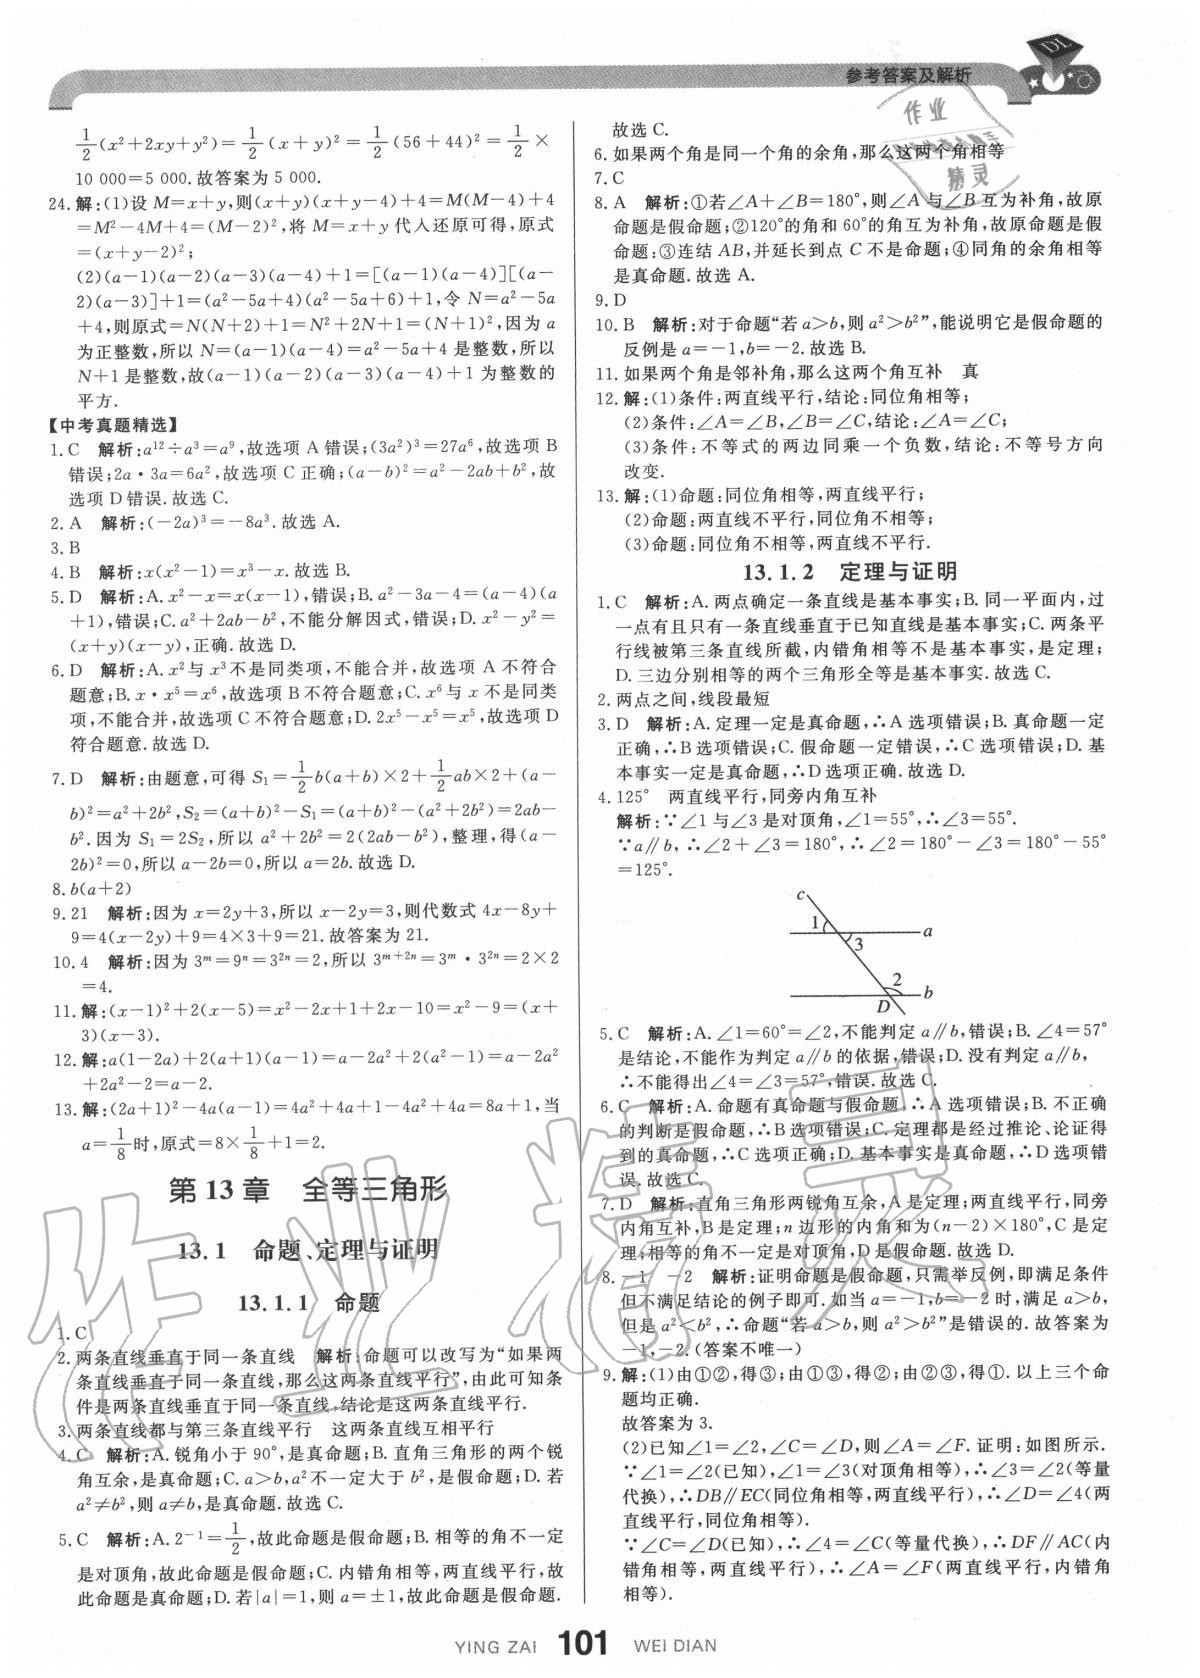 参考答案及解析
DL
作业
精灵
1/2(x²+2xy+y²)=1/2(x+y)²=1/2(56+44)²=1/2×
10 000=5 000.故答案为 5 000.
24.解:(1)设 M=x+y,则(x+y)(x+y-4)+4=M(M-4)+4
=M²-4M+4=(M-2)²,将 M=x+y 代人还原可得,原式
=(x+y-2)²;
(2)(a-1)(a-2)(a-3)(a-4)+1=[(a-1)(a-4)][(a-
2)(a-3)]+1=(a²-5a+4)(a²-5a+6)+1,令 N=a²-5a
+4,则原式=N(N+2)+1=N²+2N+1=(N+1)²,因为 a
为正整数,所以 N=(a-1)(a-4)=a²-5a+4 是整数,所以
N+1 是整数,故(a-1)(a-2)(a-3)(a-4)+1 为整数的
平方.
【中考真题精选】
1.C 解析:a¹²÷a³=a⁹,故选项 A 错误;(3a²)³=27a⁶,故选项 B
错误;2a·3a=6a²,故选项 C 正确;(a-b)²=a²-2ab+b²,故
选项 D 错误.故选 C.
2.A 解析:(-2a)³=-8a³.故选 A.
3.B
4.B 解析:x(x²-1)=x³-x.故选 B.
5.D 解析:A.x²-x=x(x-1),错误;B.a²-3a-4=(a-4)(a
+1),错误;C.a²+2ab-b²,不能分解因式,错误;D.x²-y²=
(x+y)(x-y),正确.故选 D.
6.D 解析:A.x²与 x³不是同类项,不能合并,故选项 A 不符合
题意;B.x·x⁵=x⁶,故选项 B 不符合题意;C.x⁶与 x 不是同类
项,不能合并,故选项 C 不符合题意;D.2x⁵-x⁵=x⁵,故选项 D
符合题意.故选 D.
7.D 解析:由题意,可得 S₁=1/2b(a+b)×2+1/2ab×2+(a-
b)²=a²+2b²,S₂=(a+b)²-S₁=(a+b)²-(a²+2b²)=2ab-
b².因为 S₁=2S₂,所以 a²+2b²=2(2ab-b²),整理,得(a-
2b)²=0,所以 a-2b=0,所以 a=2b.故选 D.
8.b(a+2)
9.21 解析:因为 x=2y+3,所以 x-2y=3,则代数式 4x-8y+
9=4(x-2y)+9=4×3+9=21.故答案为 21.
10.4 解析:因为 3ᵐ=9ⁿ=3²ⁿ=2,所以 3ᵐ⁺²ⁿ=3ᵐ·3²ⁿ=2×2
=4.
11.解:(x-1)²+2(x-5)=x²-2x+1+2x-10=x²-9=(x+
3)(x-3).
12.解:a(1-2a)+2(a+1)(a-1)=a-2a²+2(a²-1)=a-2a²
+2a²-2=a-2.
13.解:(2a+1)²-4a(a-1)=4a²+4a+1-4a²+4a=8a+1,当
a=1/8时,原式=8×1/8+1=2.
第 13 章 全等三角形
13.1 命题、定理与证明
13.1.1 命题
1.C
2.两条直线垂直于同一条直线 解析:命题可以改写为“如果两
条直线垂直于同一条直线,那么这两条直线平行”,由此可知条
件是两条直线垂直于同一条直线,结论是这两条直线平行.
3.两条直线都与第三条直线平行 这两条直线互相平行
4.C 解析:A.锐角小于 90°,是真命题;B.直角三角形的两个锐
角互余,是真命题;C.a>b,a²不一定大于 b²,是假命题;D.若
a²≠b²,则 a≠b,是真命题.故选 C.
5.C 解析:A.2⁻¹=1/2,故此命题是假命题;B.相等的角不一定
是对顶角,故此命题是假命题;C.内错角相等,两直线平行,故
此命题是真命题;D.若|a|=1,则 a=±1,故此命题是假命题.
故选 C.
6.如果两个角是同一个角的余角,那么这两个角相等
7.C
8.A 解析:①若∠A+∠B=180°,则∠A 与∠B 互为补角,故原
命题是假命题;②120°的角和 60°的角互为补角,故原命题是假
命题;③连结 AB,并延长到点 C 不是命题;④同角的余角相等
是真命题.故选 A.
9.D
10.B 解析:对于命题“若 a>b,则 a²>b²”,能说明它是假命题的
反例是 a=-1,b=-2.故选 B.
11.如果两个角是邻补角,那么这两个角互补 真
12.解:(1)条件:两直线平行,结论:同位角相等;
(2)条件:∠A=∠B,∠B=∠C,结论:∠A=∠C;
(3)条件:不等式的两边同乘一个负数,结论:不等号方向
改变.
13.解:(1)命题:同位角相等,两直线平行;
(2)命题:两直线不平行,同位角不相等;
(3)命题:同位角不相等,两直线不平行.
13.1.2 定理与证明
1.C 解析:A.两点确定一条直线是基本事实;B.同一平面内,过
一点有且只有一条直线垂直于已知直线是基本事实;C.两条平
行线被第三条直线所截,内错角相等不是基本事实,是定理;
D.三边分别相等的两个三角形全等是基本事实.故选 C.
2.两点之间,线段最短
3.D 解析:A.定理一定是真命题,∴A 选项错误;B.真命题一定
正确,∴B 选项错误;C.假命题一定错误,∴C 选项错误;D.基
本事实一定是真命题,∴D 选项正确.故选 D.
4.125° 两直线平行,同旁内角互补
解析:∵∠1 与∠3 是对顶角,∠1=55°,∴∠3=55°.
∵a∥b,∴∠2+∠3=180°,∴∠2=180°-∠3=180°-55°
=125°.
c
1
a
3
2
b
D
5.C 解析:A.∠1=60°=∠2,不能判定 a∥b,错误;B.∠4=57°
是结论,不能作为判定 a∥b 的依据,错误;D.没有判定 a∥b,
∴不能得出∠4=∠3=57°,错误.故选 C.
6.C 解析:A.命题有真命题与假命题,∴A 选项错误;B.不正确
的判断是假命题,∴B 选项错误;C.定理都是经过推论、论证得
到的真命题,∴C 选项正确;D.基本事实是真命题,∴D 选项错
误.故选 C.
7.D 解析:直角三角形两锐角互余,A 是定理;两直线平行,同旁
内角互补,B 是定理;n 边形的内角和为(n-2)×180°,C 是定
理,相等的角不一定是对顶角,D 是假命题.故选 D.
8.-1 -2 解析:证明命题是假命题,只需举反例,即满足条件
但不满足结论的例子即可.如当 a=-1,b=-2 时,满足 a>b,
但是 a²<b²,∴命题“若 a>b,则 a²>b²”是错误的.故答案为
-1,-2.(答案不唯一)
9.解:(1)由①②,得③;由①③,得②;由②③,得①.以上三个命
题均正确.
故答案为 3.
(2)已知∠1=∠2,∠C=∠D,则∠A=∠F.证明:如图所示.
∵∠1=∠2(已知),∠1=∠3(对顶角相等),∴∠3=∠2(等量
代换),∴DB∥EC(同位角相等,两直线平行),∴∠D=∠4(两
直线平行,同位角相等).
∵∠C=∠D(已知),∴∠4=∠C(等量代换),∴DF∥AC(内
错角相等,两直线平行),∴∠A=∠F(两直线平行,内错角
相等).
作业精灵
YING ZAI 101 WEI DIAN